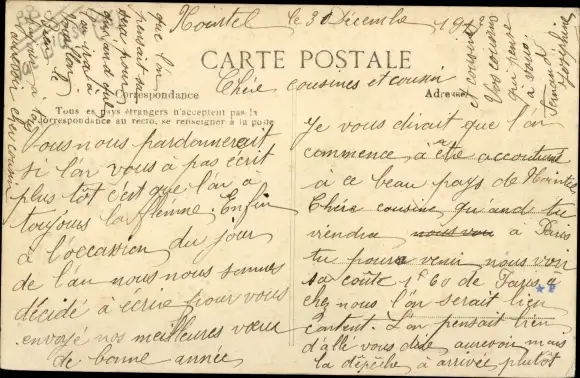 Nointel le 30 Décembre 19
CARTE POSTALE
Chère cousines et cousin
Correspondance
Adresse
Tous les pays étrangers n'acceptent pas la
correspondance au recto, se renseigner à la poste
Vous nous pardonnerait
si l'on vous à pas écrit
plus tôt c'est que l'on à
toujours la flémme. Enfin
à l'occasion du jour
de l'an nous nous sommes
décidé à écrire pour vous
envoyé nos meilleures vœux
de bonne année
Je vous dirait que l'on
commence à être accoutumé
à ce beau pays de Nointel
Chère cousine quand tu
viendra nous vou à Paris
tu pourra venir nous voir
sa coûte 1f60 de Paris à
chez nous l'on serait bien
content. L'on pensait bien
d'allé vous dire aurevoir mais
la dépêche à arrivée plutôt
que l'on
pensait sa
sera pour
quand que
l'on ira à
au revoir cher cousin
et cousine
Vos cousins
qui pense
à vous
Fernand
Joséphine